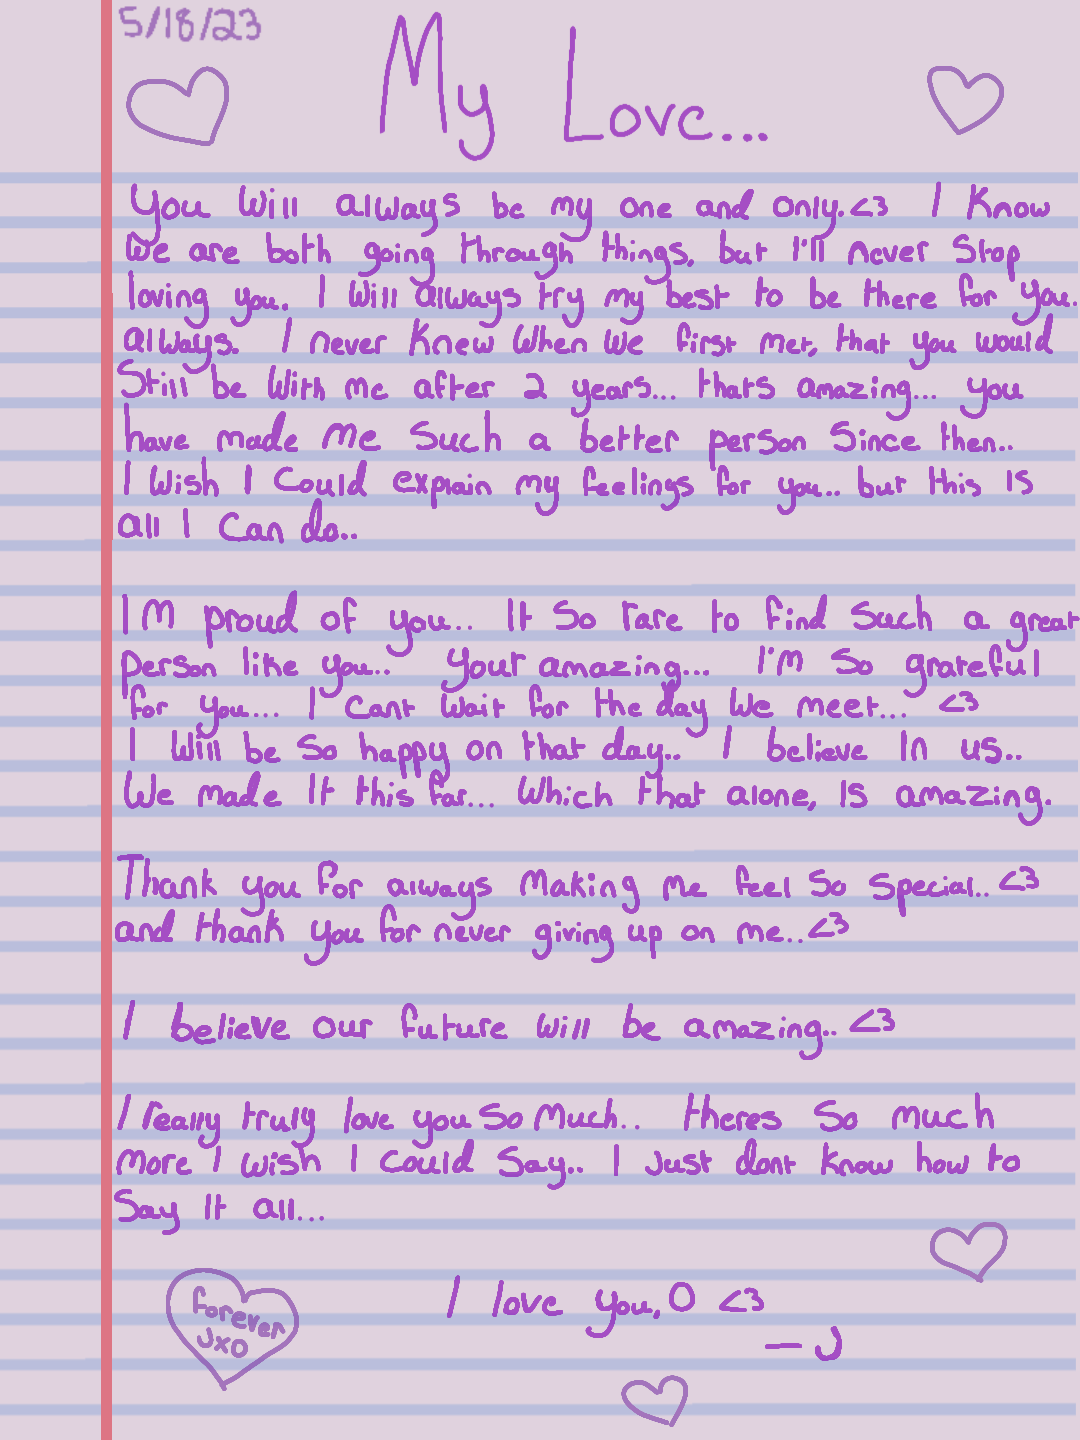 5/18/23
My Love...
You will always be my one and only.<3 I know
we are both going through things, but I'll never stop
loving you. I will always try my best to be there for you.
always. I never knew when we first met, that you would
still be with me after 2 years... thats amazing... you
have made me such a better person since then..
I wish I could explain my feelings for you.. but this is
all I can do..
Im proud of you.. It so rare to find such a great
person like you.. your amazing... I'm so grateful
for you... I cant wait for the day we meet... <3
I will be so happy on that day.. I believe in us..
We made it this far... which that alone, is amazing.
Thank you for always making me feel so special.. <3
and thank you for never giving up on me..<3
I believe our future will be amazing.. <3
I really truly love you so much.. theres so much
more I wish I could say.. I just dont know how to
say it all...
I love you, O <3
— J
Forever
JxO